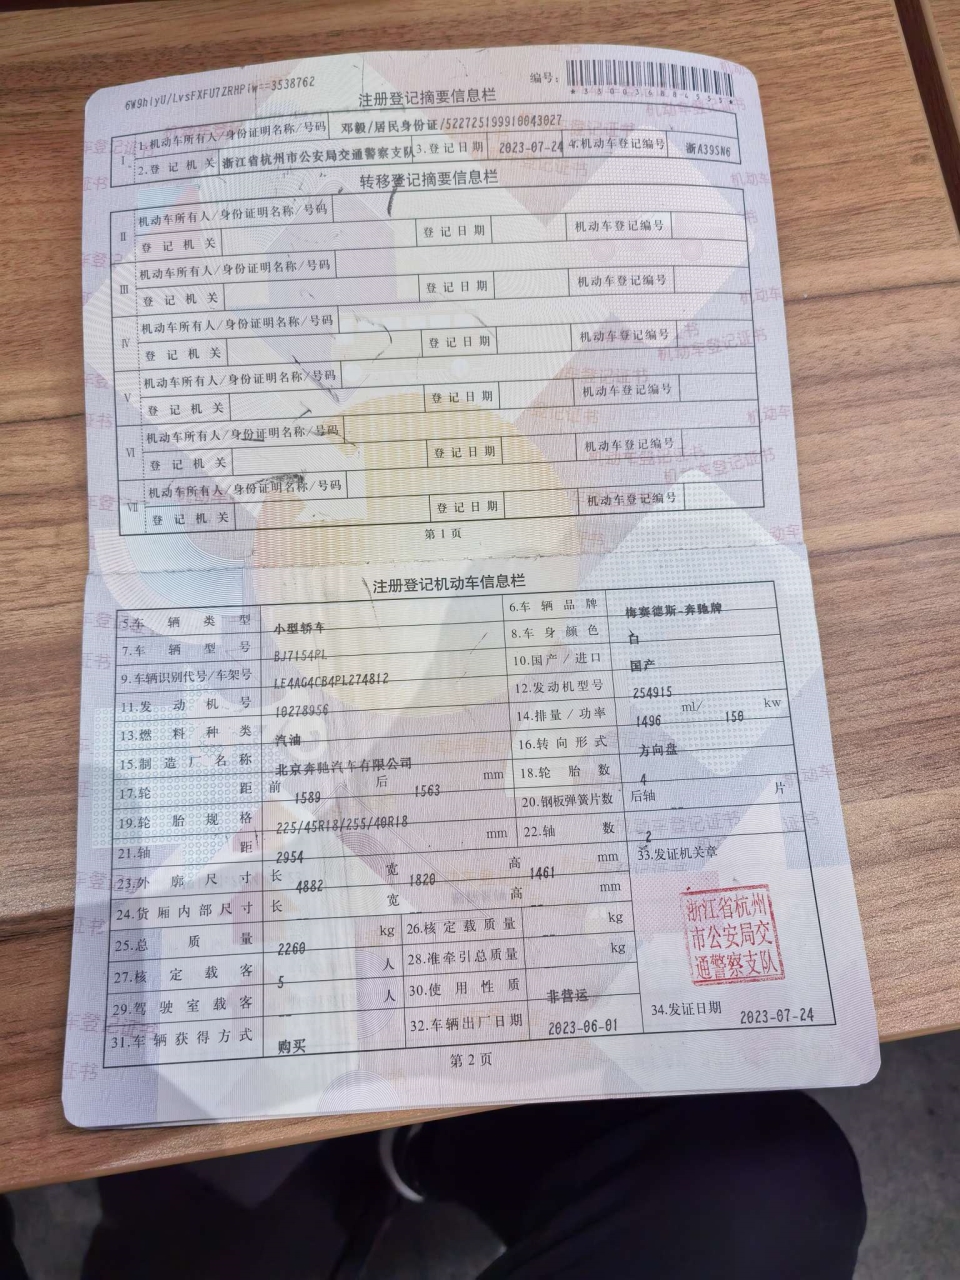 6W9hlyU/LvsFXFU7ZRHPiw==3538762
编号:
注册登记摘要信息栏
Ⅰ 1.机动车所有人/身份证明名称/号码 邓毅/居民身份证/522725199910043027
2.登记机关 浙江省杭州市公安局交通警察支队 3.登记日期 2023-07-24 4.机动车登记编号 浙A39SN6
转移登记摘要信息栏
Ⅱ 机动车所有人/身份证明名称/号码
登记机关 登记日期 机动车登记编号
Ⅲ 机动车所有人/身份证明名称/号码
登记机关 登记日期 机动车登记编号
Ⅳ 机动车所有人/身份证明名称/号码
登记机关 登记日期 机动车登记编号
Ⅴ 机动车所有人/身份证明名称/号码
登记机关 登记日期 机动车登记编号
Ⅵ 机动车所有人/身份证明名称/号码
登记机关 登记日期 机动车登记编号
Ⅶ 机动车所有人/身份证明名称/号码
登记机关 登记日期 机动车登记编号
第1页
注册登记机动车信息栏
5.车辆类型 小型轿车 6.车辆品牌 梅赛德斯-奔驰牌
7.车辆型号 BJ7154PL 8.车身颜色 白
9.车辆识别代号/车架号 LE4AG4CB4PL274812 10.国产/进口 国产
11.发动机号 10278956 12.发动机型号 254915
13.燃料种类 汽油 14.排量/功率 1496 ml/ 150 kw
15.制造厂名称 北京奔驰汽车有限公司 16.转向形式 方向盘
17.轮距 前 1589 后 1563 mm 18.轮胎数 4
19.轮胎规格 225/45R18/255/40R18 20.钢板弹簧片数 后轴 -- 片
21.轴距 2954 mm 22.轴数 2
23.外廓尺寸 长 4882 宽 1820 高 1461 mm 33.发证机关章
24.货厢内部尺寸 长 宽 高 -- mm
25.总质量 2260 kg 26.核定载质量 -- kg
27.核定载客 5 人 28.准牵引总质量 -- kg
29.驾驶室载客 -- 人 30.使用性质 非营运
31.车辆获得方式 购买 32.车辆出厂日期 2023-06-01 34.发证日期 2023-07-24
浙江省杭州
市公安局交
通警察支队
第2页